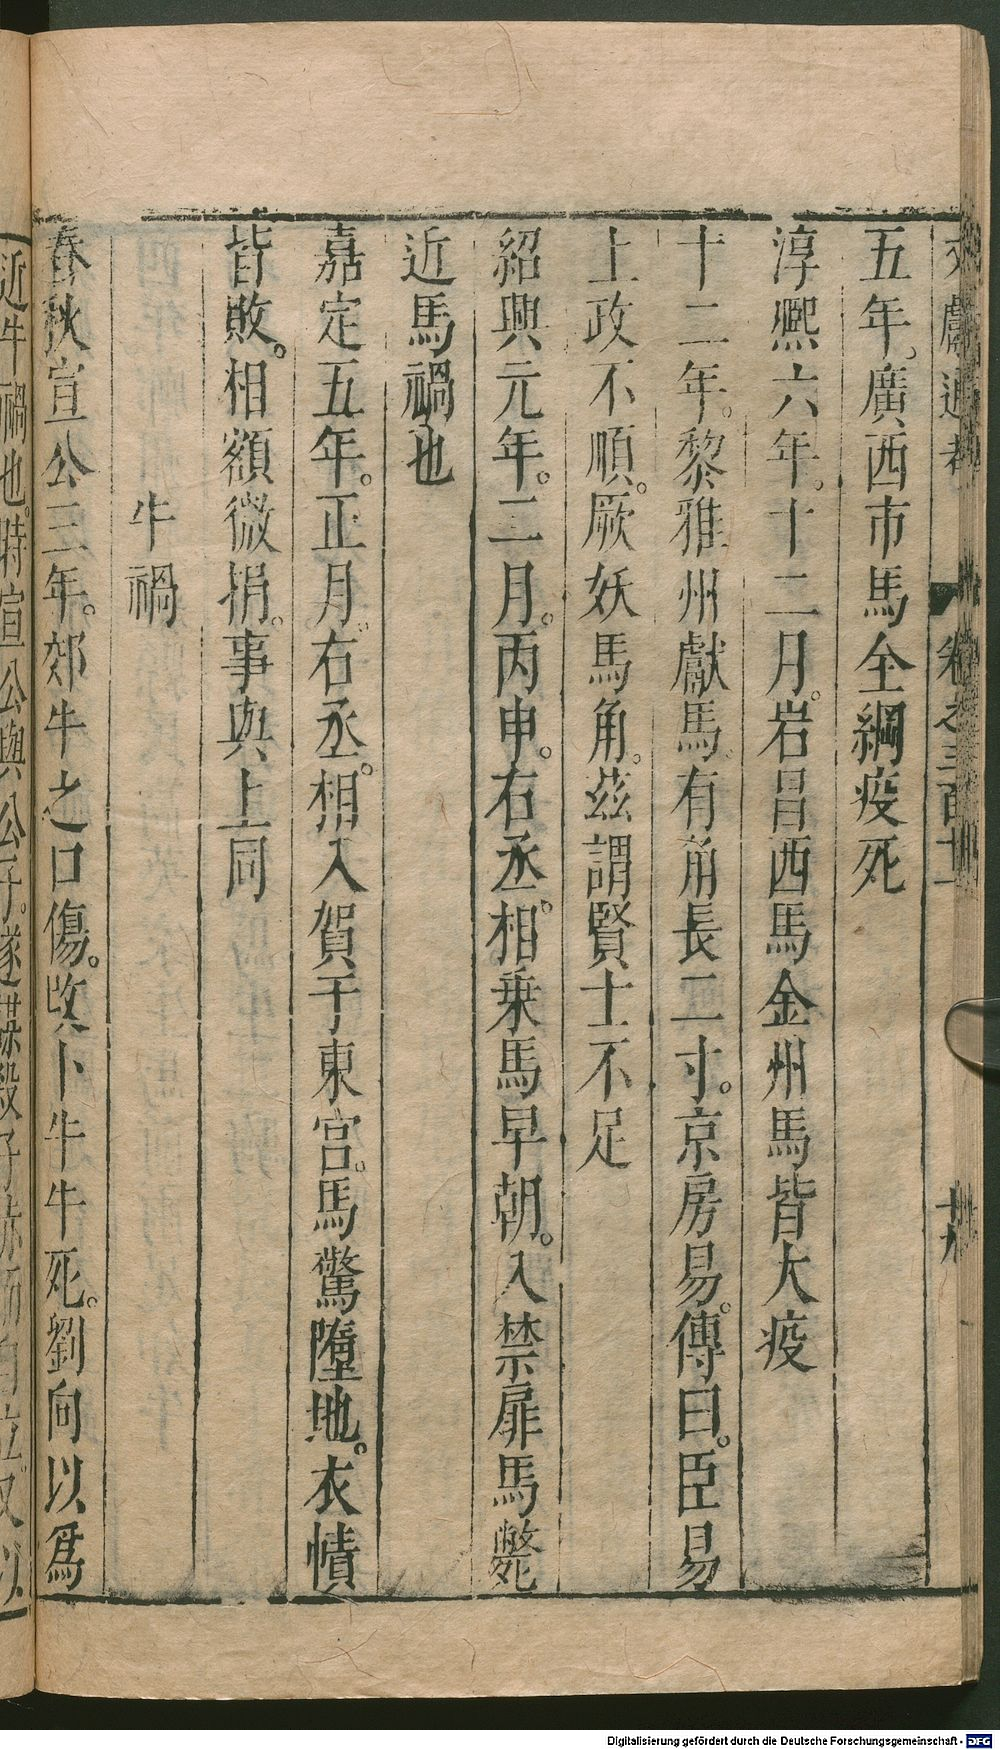 文獻通考 卷之三百十一 十九
五年。廣西市馬全綱疫死
淳熙六年。十二月。岩昌西馬金州馬皆大疫
十二年。黎雅州獻馬。有角長二寸。京房易。傳曰。臣易
上政不順。厥妖馬角。茲謂賢士不足
紹興元年。二月。丙申。右丞。相乗馬早朝。入禁扉馬斃
近馬禍也
嘉定五年。正月。右丞。相入賀于東宮。馬驚墮地。衣幘
皆敗。相額微損。事與上同
牛禍
春秋宣公三年。郊牛之口傷。改卜牛牛死。劉向以爲
近牛禍也。時宣公與公子。遂謀殺子赤而自立又以
Digitalisierung gefördert durch die Deutsche Forschungsgemeinschaft - DFG